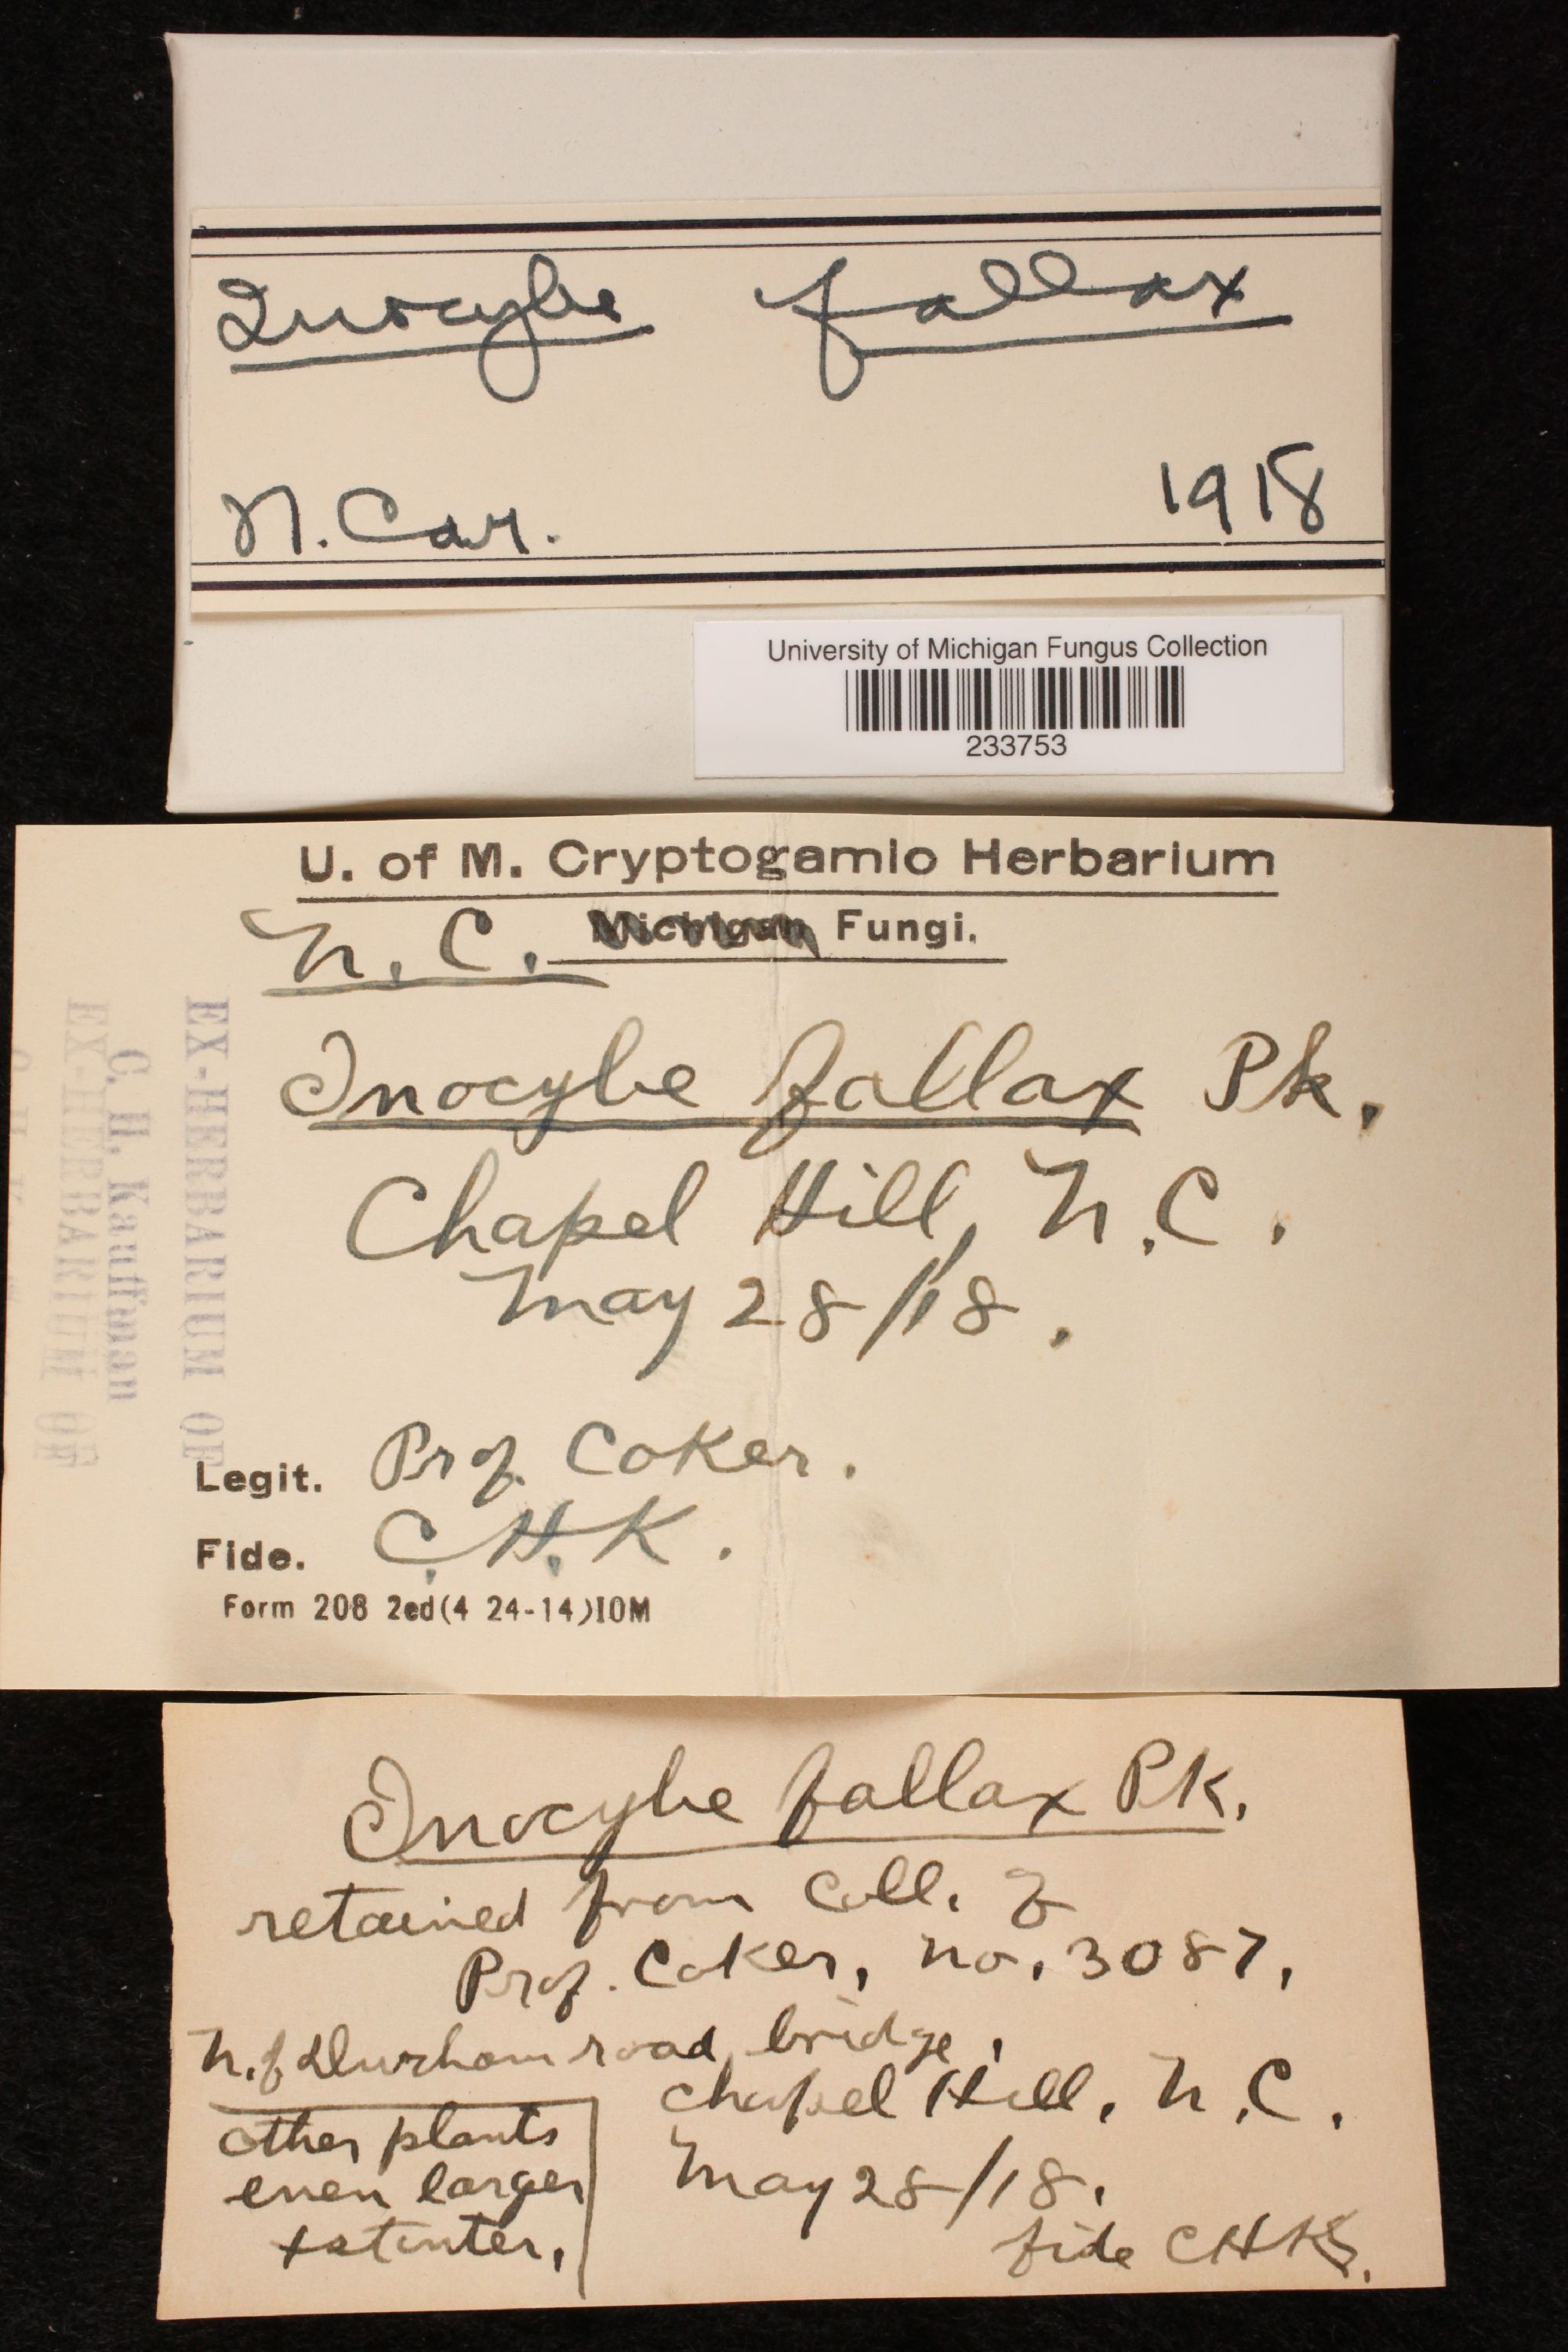 Inocybe fallax
N. Car. 1918
University of Michigan Fungus Collection
233753
U. of M. Cryptogamic Herbarium
N. C. Michigan Fungi.
Inocybe fallax Pk.
Chapel Hill, N. C.
May 28/18.
EX-HERBARIUM OF
C. H. Kauffman
EX-HERBARIUM OF
Legit. Prof. Coker.
Fide. C. H. K.
Form 208 2ed(4 24-14)10M
Inocybe fallax Pk.
retained from Coll. of
Prof. Coker, no. 3087,
N. of Durham road bridge,
Chapel Hill, N. C.
May 28/18.
fide CHK.
other plants
even larger
+ stouter.